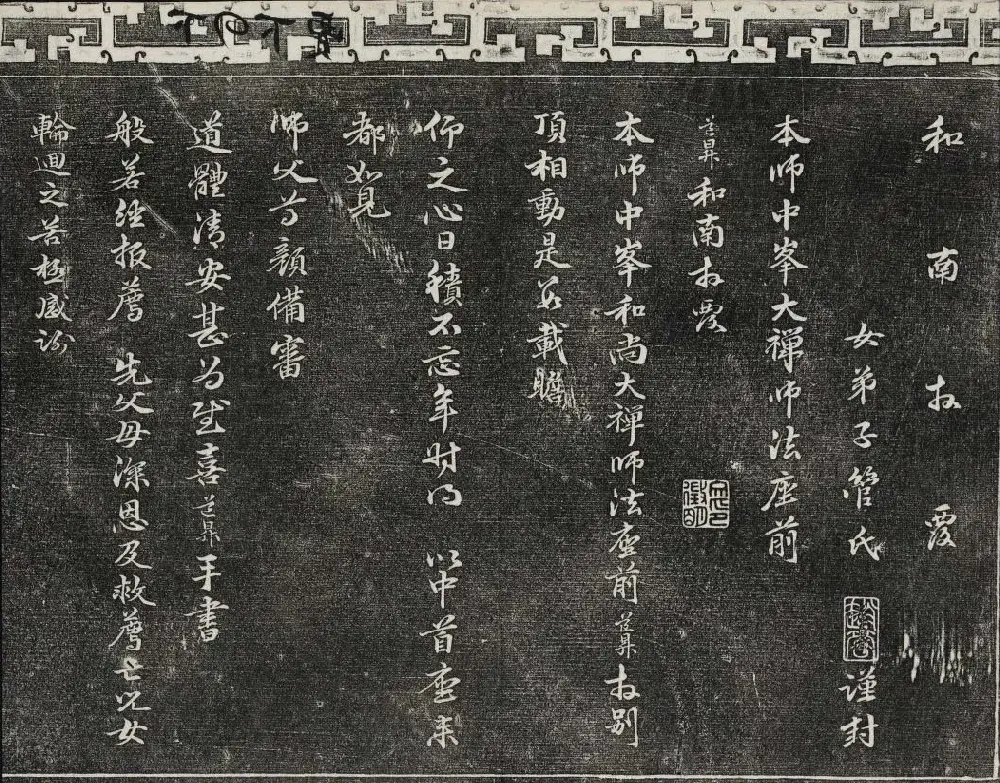 和南拜覆
女弟子管氏謹封
本師中峯大禪師法座前
道昇和南拜覆
本師中峯和尚大禪師法座前道昇拜別
頂相動是數載瞻
仰之心日積不忘年時得 以中首座來
都如見
師父尊顏備審
道體清安甚為慰喜道昇手書
般若經報薦 先父母深恩及救薦亡兒女
輪迴之苦極感